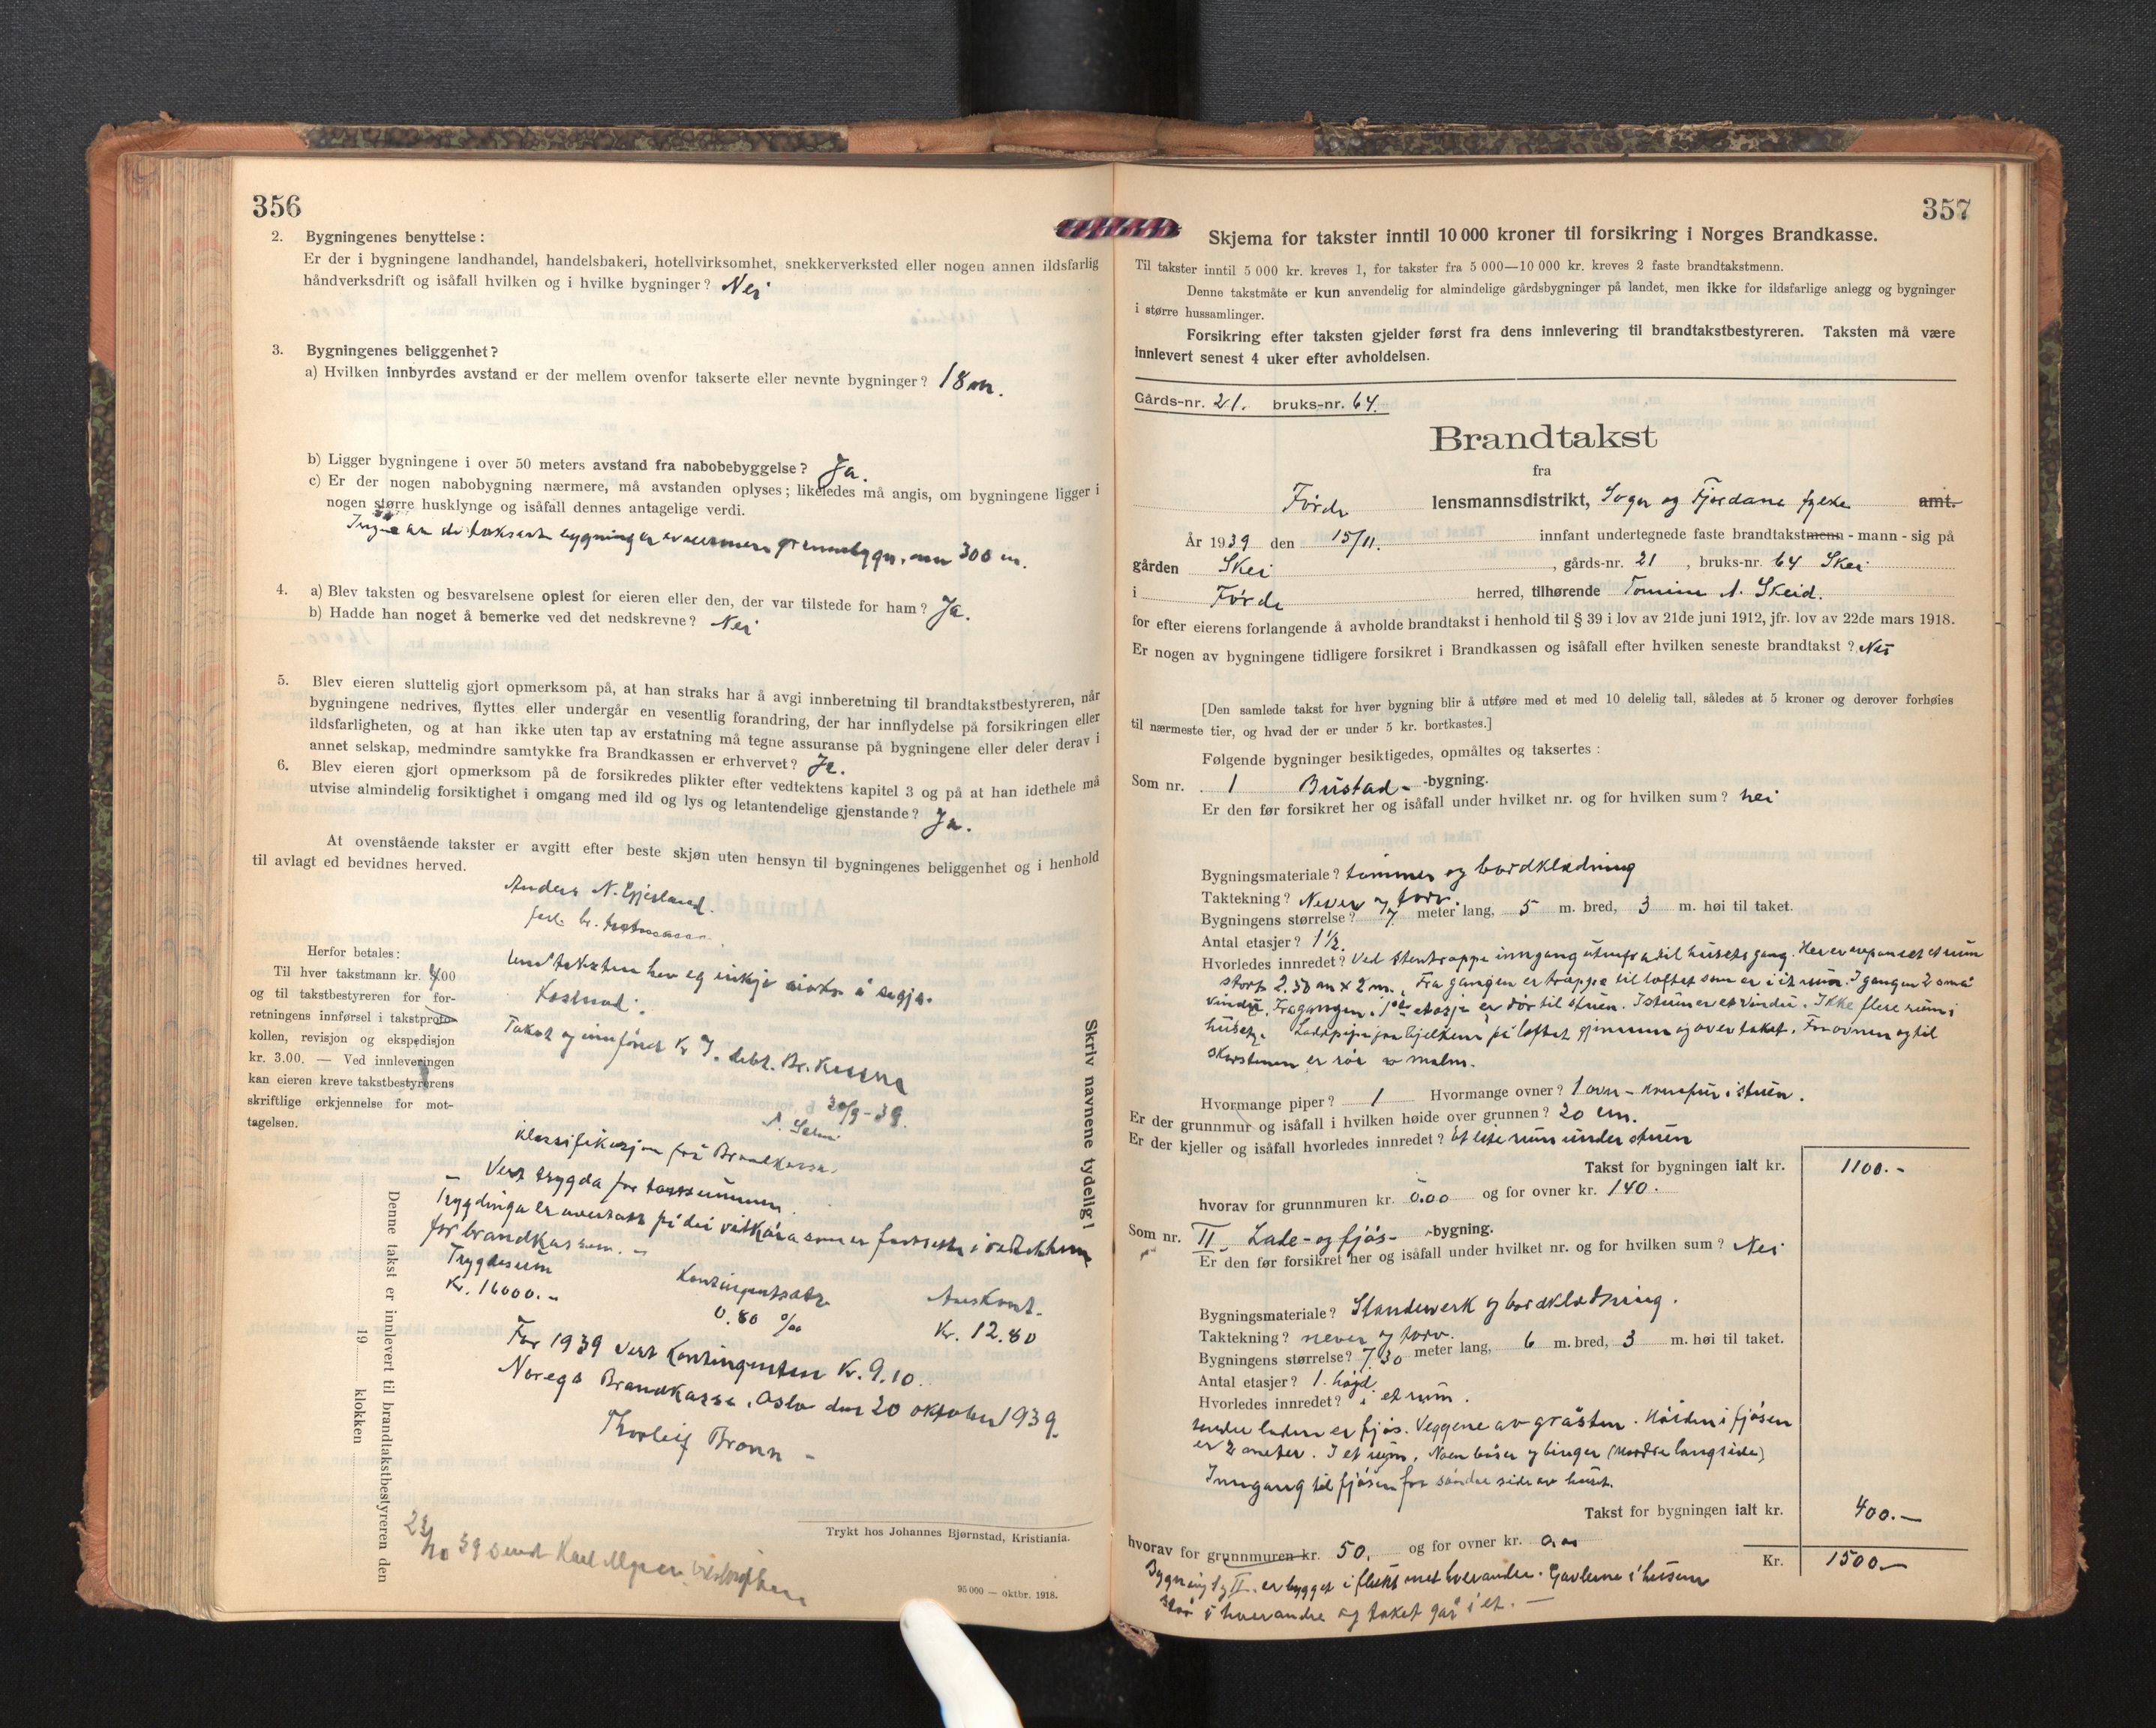 356
2. Bygningenes benyttelse:
Er der i bygningene landhandel, handelsbakeri, hotellvirksomhet, snekkerverksted eller nogen annen ildsfarlig
håndverksdrift og isåfall hvilken og i hvilke bygninger? Nei
3. Bygningenes beliggenhet?
a) Hvilken innbyrdes avstand er der mellem ovenfor takserte eller nevnte bygninger? 18 m.
b) Ligger bygningene i over 50 meters avstand fra nabobebyggelse? Ja.
c) Er der nogen nabobygning nærmere, må avstanden oplyses; likeledes må angis, om bygningene ligger i
nogen større husklynge og isåfall dennes antagelige verdi.
300 m.
4. a) Blev taksten og besvarelsene oplest for eieren eller den, der var tilstede for ham? Ja.
b) Hadde han noget å bemerke ved det nedskrevne? Nei
5. Blev eieren sluttelig gjort opmerksom på, at han straks har å avgi innberetning til brandtakstbestyreren, når
bygningene nedrives, flyttes eller undergår en vesentlig forandring, der har innflydelse på forsikringen eller
ildsfarligheten, og at han ikke uten tap av erstatning må tegne assuranse på bygningene eller deler derav i
annet selskap, medmindre samtykke fra Brandkassen er erhvervet? Ja.
6. Blev eieren gjort opmerksom på de forsikredes plikter efter vedtektens kapitel 3 og på at han idethele må
utvise almindelig forsiktighet i omgang med ild og lys og letantendelige gjenstande? Ja.
At ovenstående takster er avgitt efter beste skjøn uten hensyn til bygningenes beliggenhet og i henhold
til avlagt ed bevidnes herved.
Anders N.
Herfor betales:
Til hver takstmann kr. 400
og til takstbestyreren for for-
retningens innførsel i takstproto-
kollen, revisjon og ekspedisjon
kr. 3.00. — Ved innleveringen
kan eieren kreve takstbestyrerens
skriftlige erkjennelse for mot-
tagelsen.
taksten hev eg inkje å segja.
Kostnad:
Takst og innførsel Kr 7.
30/9-39.
Klassifikasjon frå Brandkassa.
Vert trygda for takssummen.
Trygdinga er
for brandkassen.
Trygdesum Kontingentsats
Kr. 16000.- 0.80 ‰ Kr. 12.80
For 1939 vert kontingenten Kr. 9.10
Noregs Brandkasse, Oslo den 20 oktober 1939.
Thorleif
Denne takst er innlevert til brandtakstbestyreren den
19 klokken
Skriv navnene tydelig!
39 sendt
Trykt hos Johannes Bjørnstad, Kristiania.
95 000 — oktbr. 1918.
357
Skjema for takster inntil 10 000 kroner til forsikring i Norges Brandkasse.
Til takster inntil 5 000 kr. kreves 1, for takster fra 5 000—10 000 kr. kreves 2 faste brandtakstmenn.
Denne takstmåte er kun anvendelig for almindelige gårdsbygninger på landet, men ikke for ildsfarlige anlegg og bygninger
i større hussamlinger.
Forsikring efter taksten gjelder først fra dens innlevering til brandtakstbestyreren. Taksten må være
innlevert senest 4 uker efter avholdelsen.
Gårds-nr. 21. bruks-nr. 64.
Brandtakst
fra
Førde lensmannsdistrikt, Sogn og Fjordane fylke amt.
År 1939 den 15/11. innfant undertegnede faste brandtakstmenn - mann - sig på
gården Skei, gårds-nr. 21, bruks-nr. 64 Skei
i Førde herred, tilhørende Tomine A. Skeid.
for efter eierens forlangende å avholde brandtakst i henhold til § 39 i lov av 21de juni 1912, jfr. lov av 22de mars 1918.
Er nogen av bygningene tidligere forsikret i Brandkassen og isåfall efter hvilken seneste brandtakst? Nei
[Den samlede takst for hver bygning blir å utføre med et med 10 delelig tall, således at 5 kroner og derover forhøies
til nærmeste tier, og hvad der er under 5 kr. bortkastes.]
Følgende bygninger besiktigedes, opmåltes og taksertes:
Som nr. 1 Bustad- -bygning.
Er den før forsikret her og isåfall under hvilket nr. og for hvilken sum? nei
Bygningsmateriale? tømmer og bordklædning
Taktekning? Never og torv.
Bygningens størrelse? 7 meter lang, 5 m. bred, 3 m. høi til taket.
Antal etasjer? 1½.
Hvorledes innredet? Ved stentrappe inngang utenfra til husets gang. Her er avpanelet et rum
stort 2.50 m x 2 m. Fra gangen er trappe til loftet som er i et rum. I gangen 2 små
vindu. Fra gangen i 1ste etasje er dør til stuen. I stuen er et vindu. Ikke flere rum i
huset. på loftet gjennem og over taket. Fra ovnen og til
skorstenen er rør av malm.
Hvormange piper? 1 Hvormange ovner? 1 ovn - i stuen.
Er der grunnmur og isåfall i hvilken høide over grunnen? 20 cm.
Er der kjeller og isåfall hvorledes innredet? Et lite rum under stuen
Takst for bygningen ialt kr. 1100.-
hvorav for grunnmuren kr. 0.00 og for ovner kr. 140.
Som nr. II. Lade- og fjøs- -bygning.
Er den før forsikret her og isåfall under hvilket nr. og for hvilken sum? Nei
Bygningsmateriale? Standverk og bordklædning.
Taktekning? never og torv.
Bygningens størrelse? 7.30 meter lang, 6 m. bred, 3 m. høi til taket.
Antal etasjer? 1. høgd.
Hvorledes innredet? i et rum.
under laden er fjøs. Veggene av gråsten. Høiden i fjøsen
er 2 meter. I et rum. Noen båser og binger (nordre langside)
Inngang til fjøsen fra søndre side av huset.
Takst for bygningen ialt kr. 400.—
hvorav for grunnmuren kr. 50. og for ovner kr. 0.00
Kr. 1500—
Bygning I og II. er bygget i flukt med hverandre. Gavlerne i husene
står i hverandre og taket går i et. —